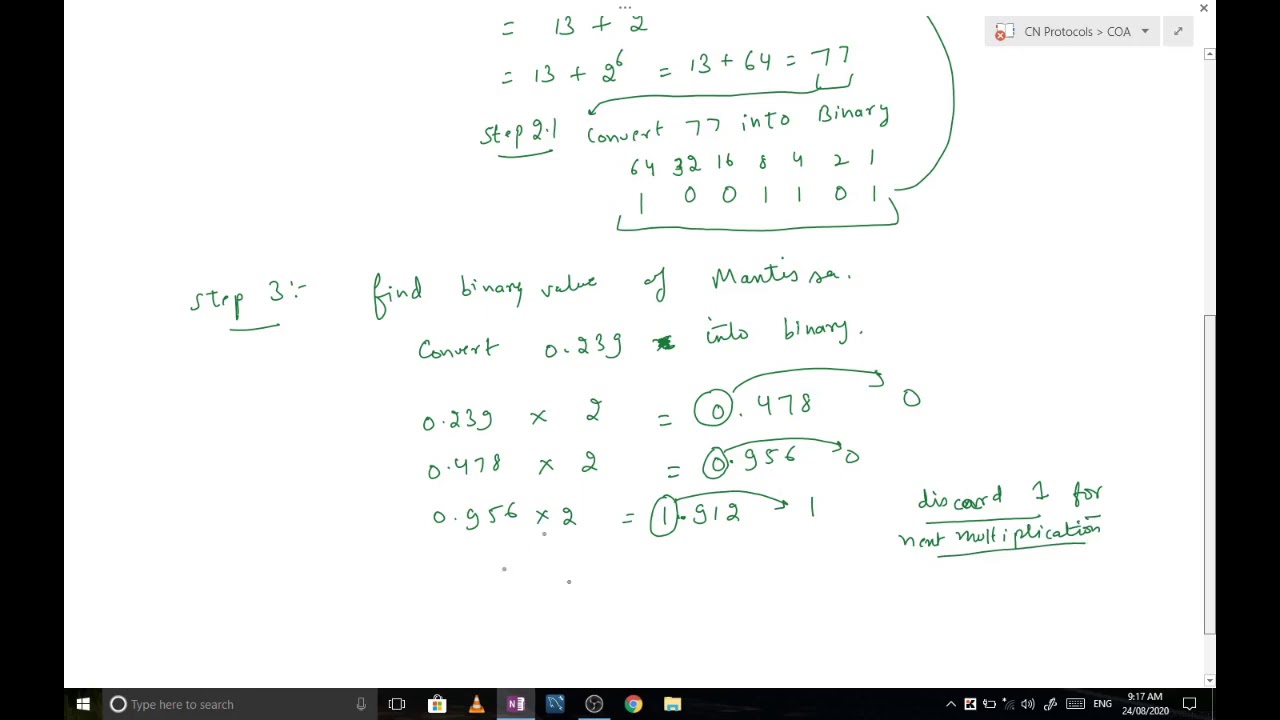 ...
= 13 + 2
CN Protocols > COA
= 13 + 2⁶ = 13 + 64 = 77
Step 2.1 Convert 77 into Binary
64 32 16 8 4 2 1
1 0 0 1 1 0 1
Step 3:- find binary value of Mantissa.
Convert 0.239 into binary.
0.239 × 2 = 0.478 0
0.478 × 2 = 0.956 0
0.956 × 2 = 1.912 1
discard 1 for
next multiplication
Type here to search
ENG
9:17 AM
24/08/2020